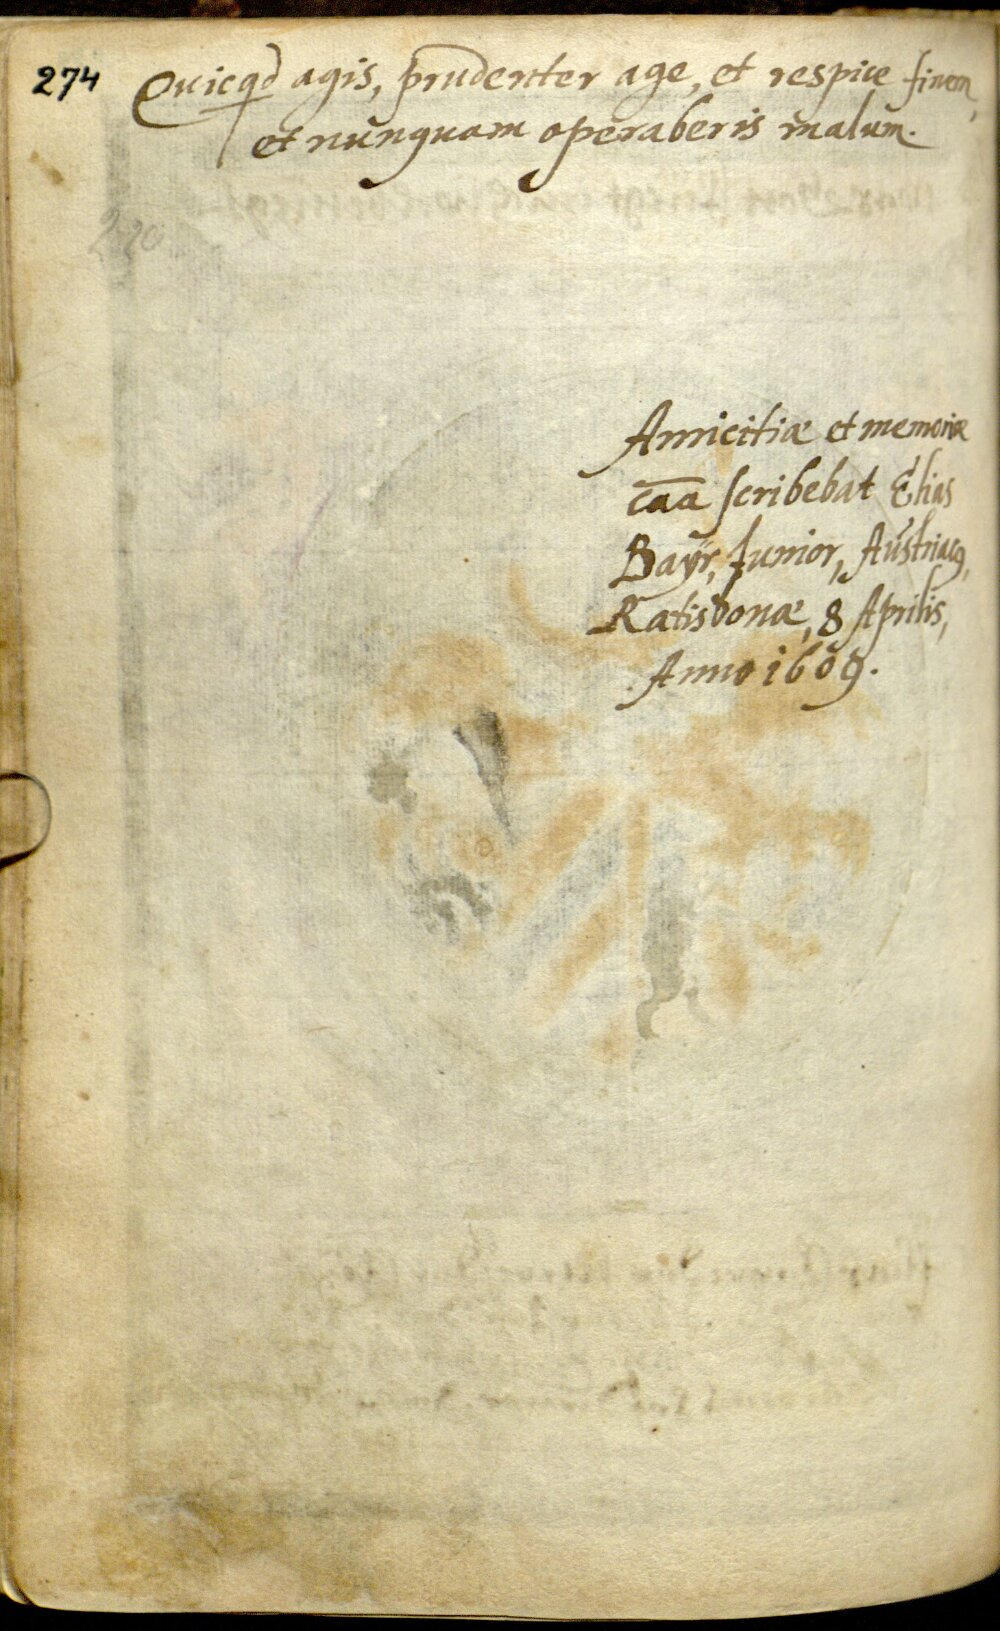 274
Quicqd agis, prudenter age, et respice finem,
et nunquam operaberis malum.
220
Amicitiæ et memoriæ
caa scribebat Elias
Bayr, Junior, Austriacq,
Ratisbonæ, 8 Aprilis,
Anno 1609.